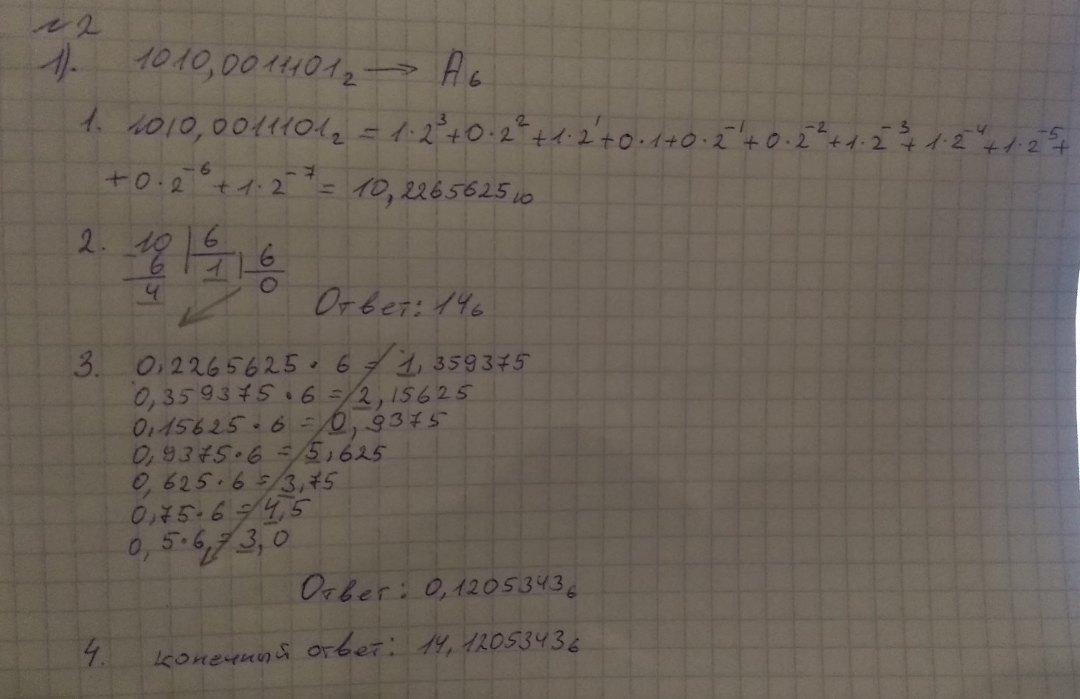 №2
1). 1010,0011101₂ → A₆
1. 1010,0011101₂ = 1·2³+0·2²+1·2¹+0·1+0·2⁻¹+0·2⁻²+1·2⁻³+1·2⁻⁴+1·2⁻⁵+
+0·2⁻⁶+1·2⁻⁷= 10,2265625₁₀
2. 10 | 6
6 1 | 6
4 0
Ответ: 14₆
3. 0,2265625 · 6 = 1,359375
0,359375 · 6 = 2,15625
0,15625 · 6 = 0,9375
0,9375·6 = 5,625
0,625·6 = 3,75
0,75·6 = 4,5
0,5·6 = 3,0
Ответ: 0,1205343₆
4. конечный ответ: 14,1205343₆